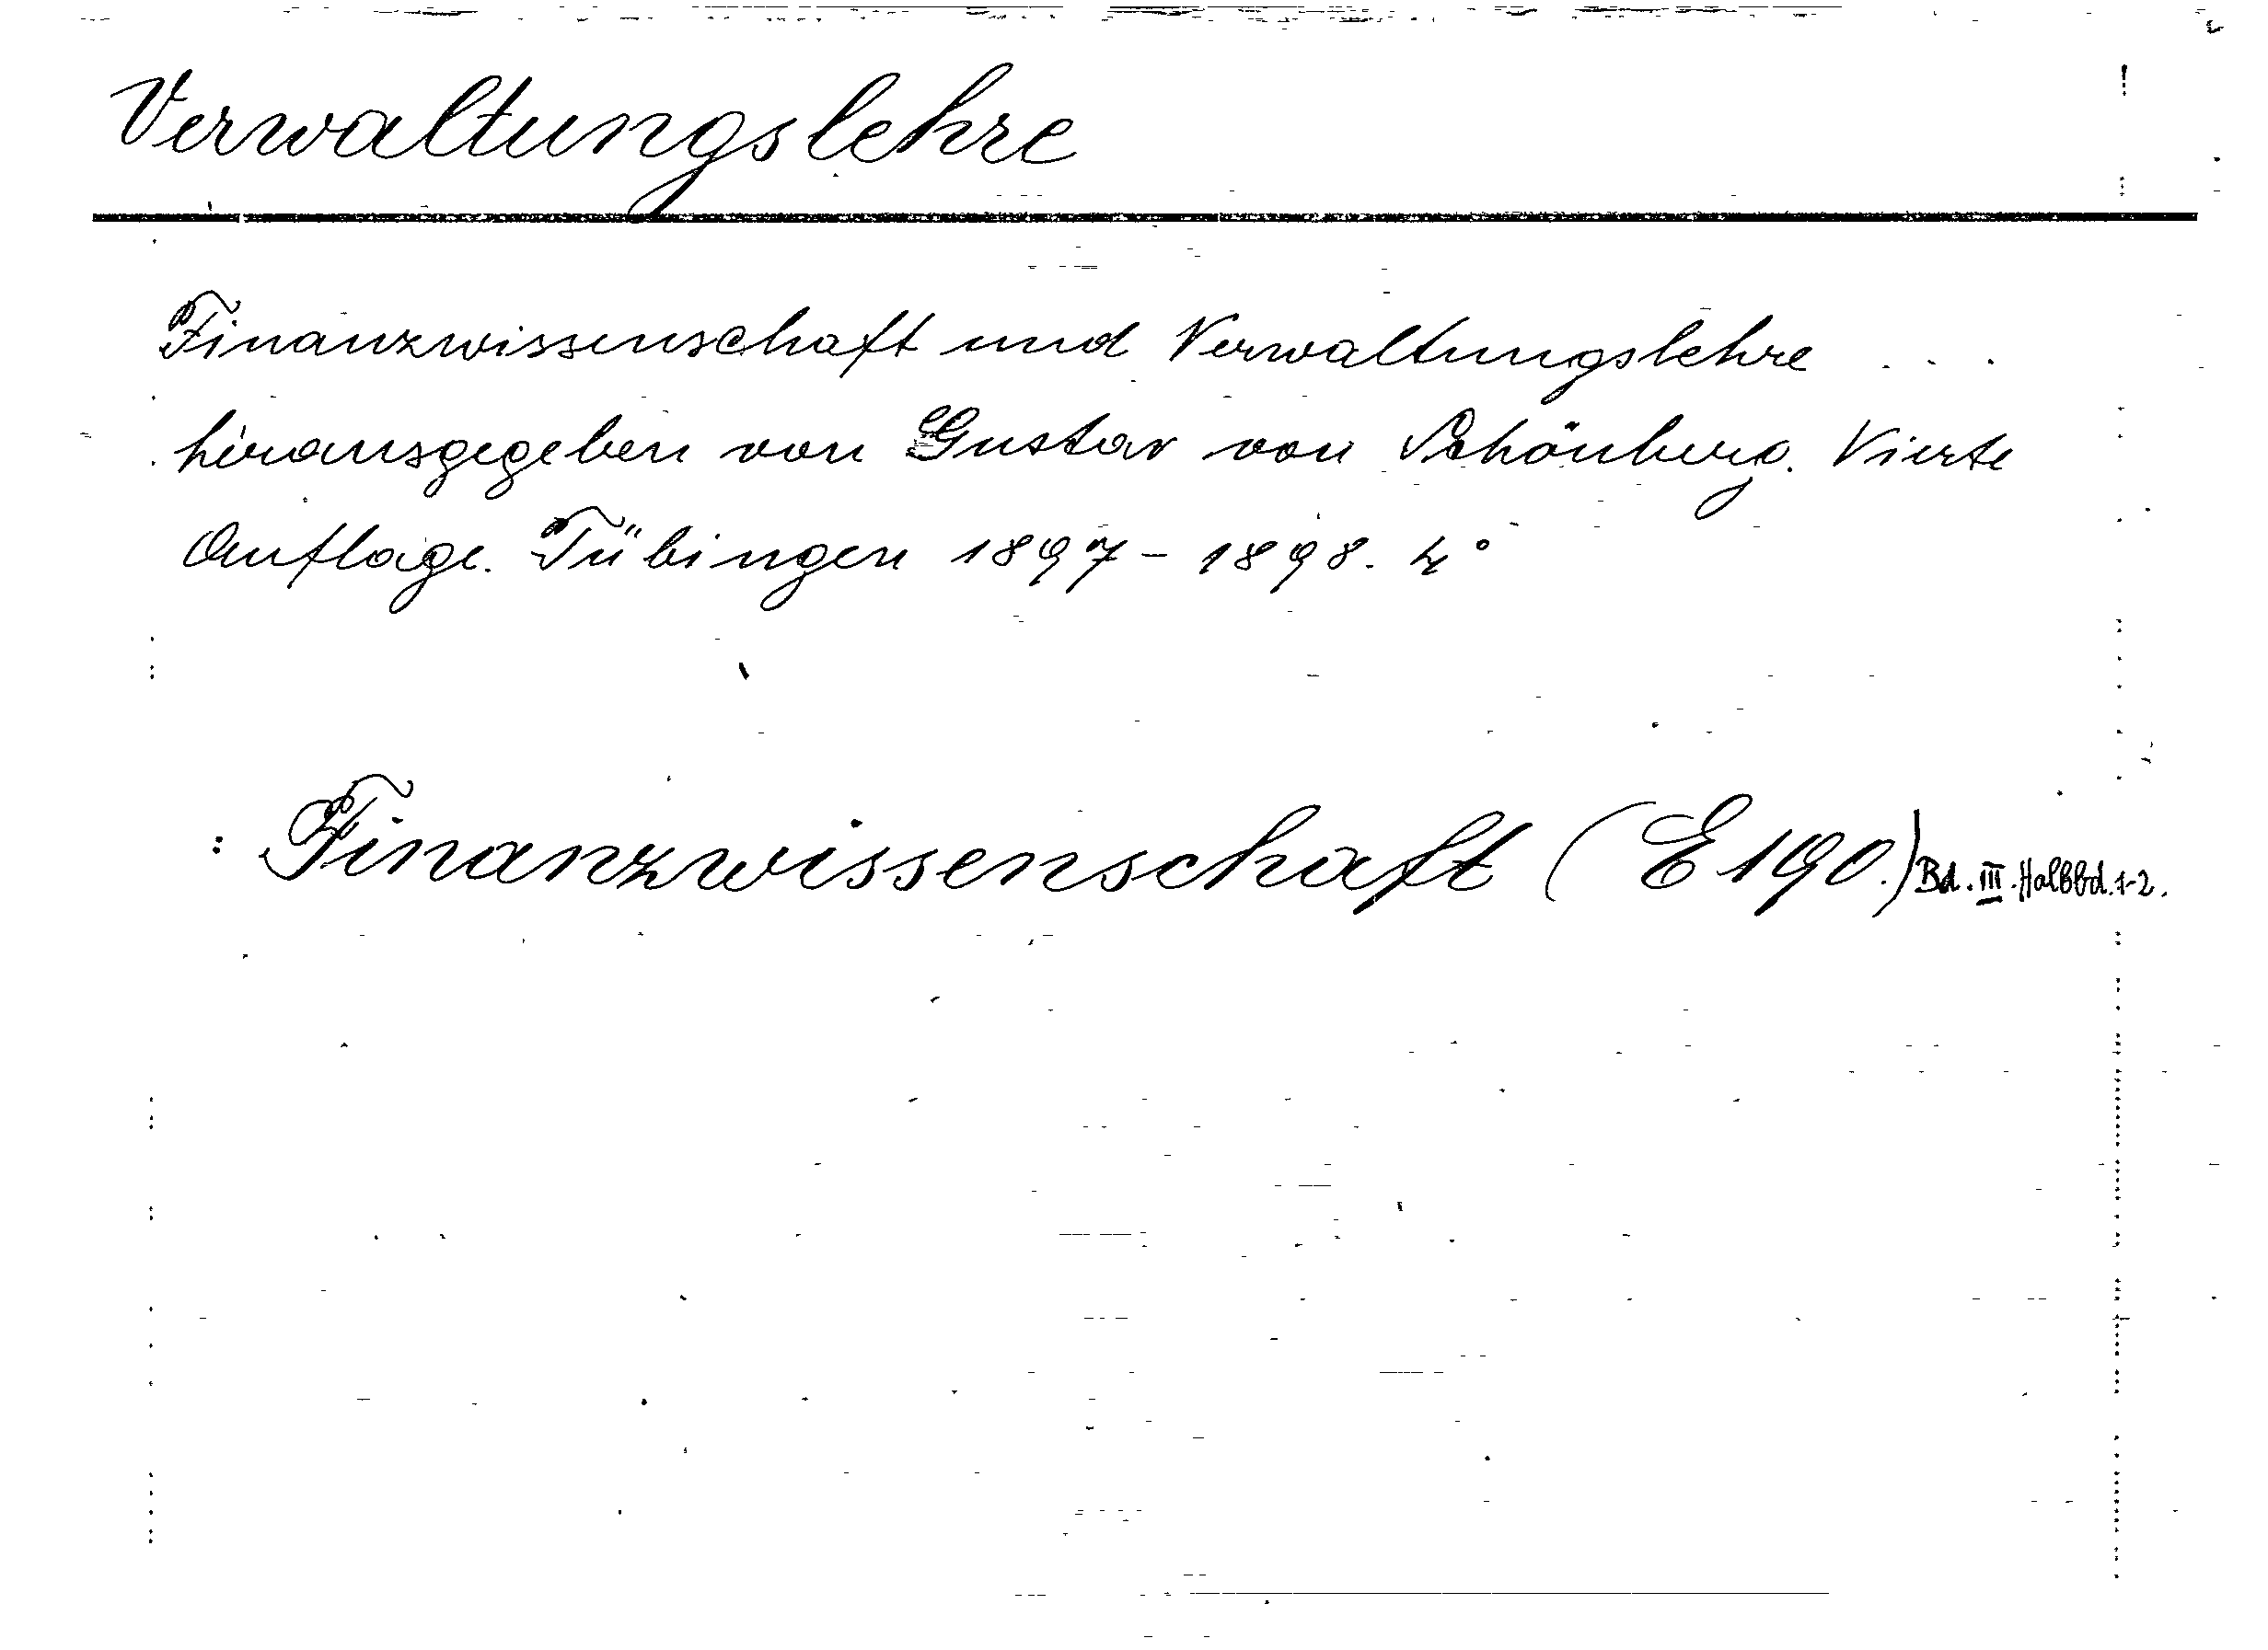 Verwaltungslehre
Finanzwissenschaft und Verwaltungslehre . . .
herausgegeben von Gustav von Schönberg. Vierte
Auflage. Tübingen 1897 - 1898. 4°
: Finanzwissenschaft (E 190.) Bd. III. Halbbd. 1-2.